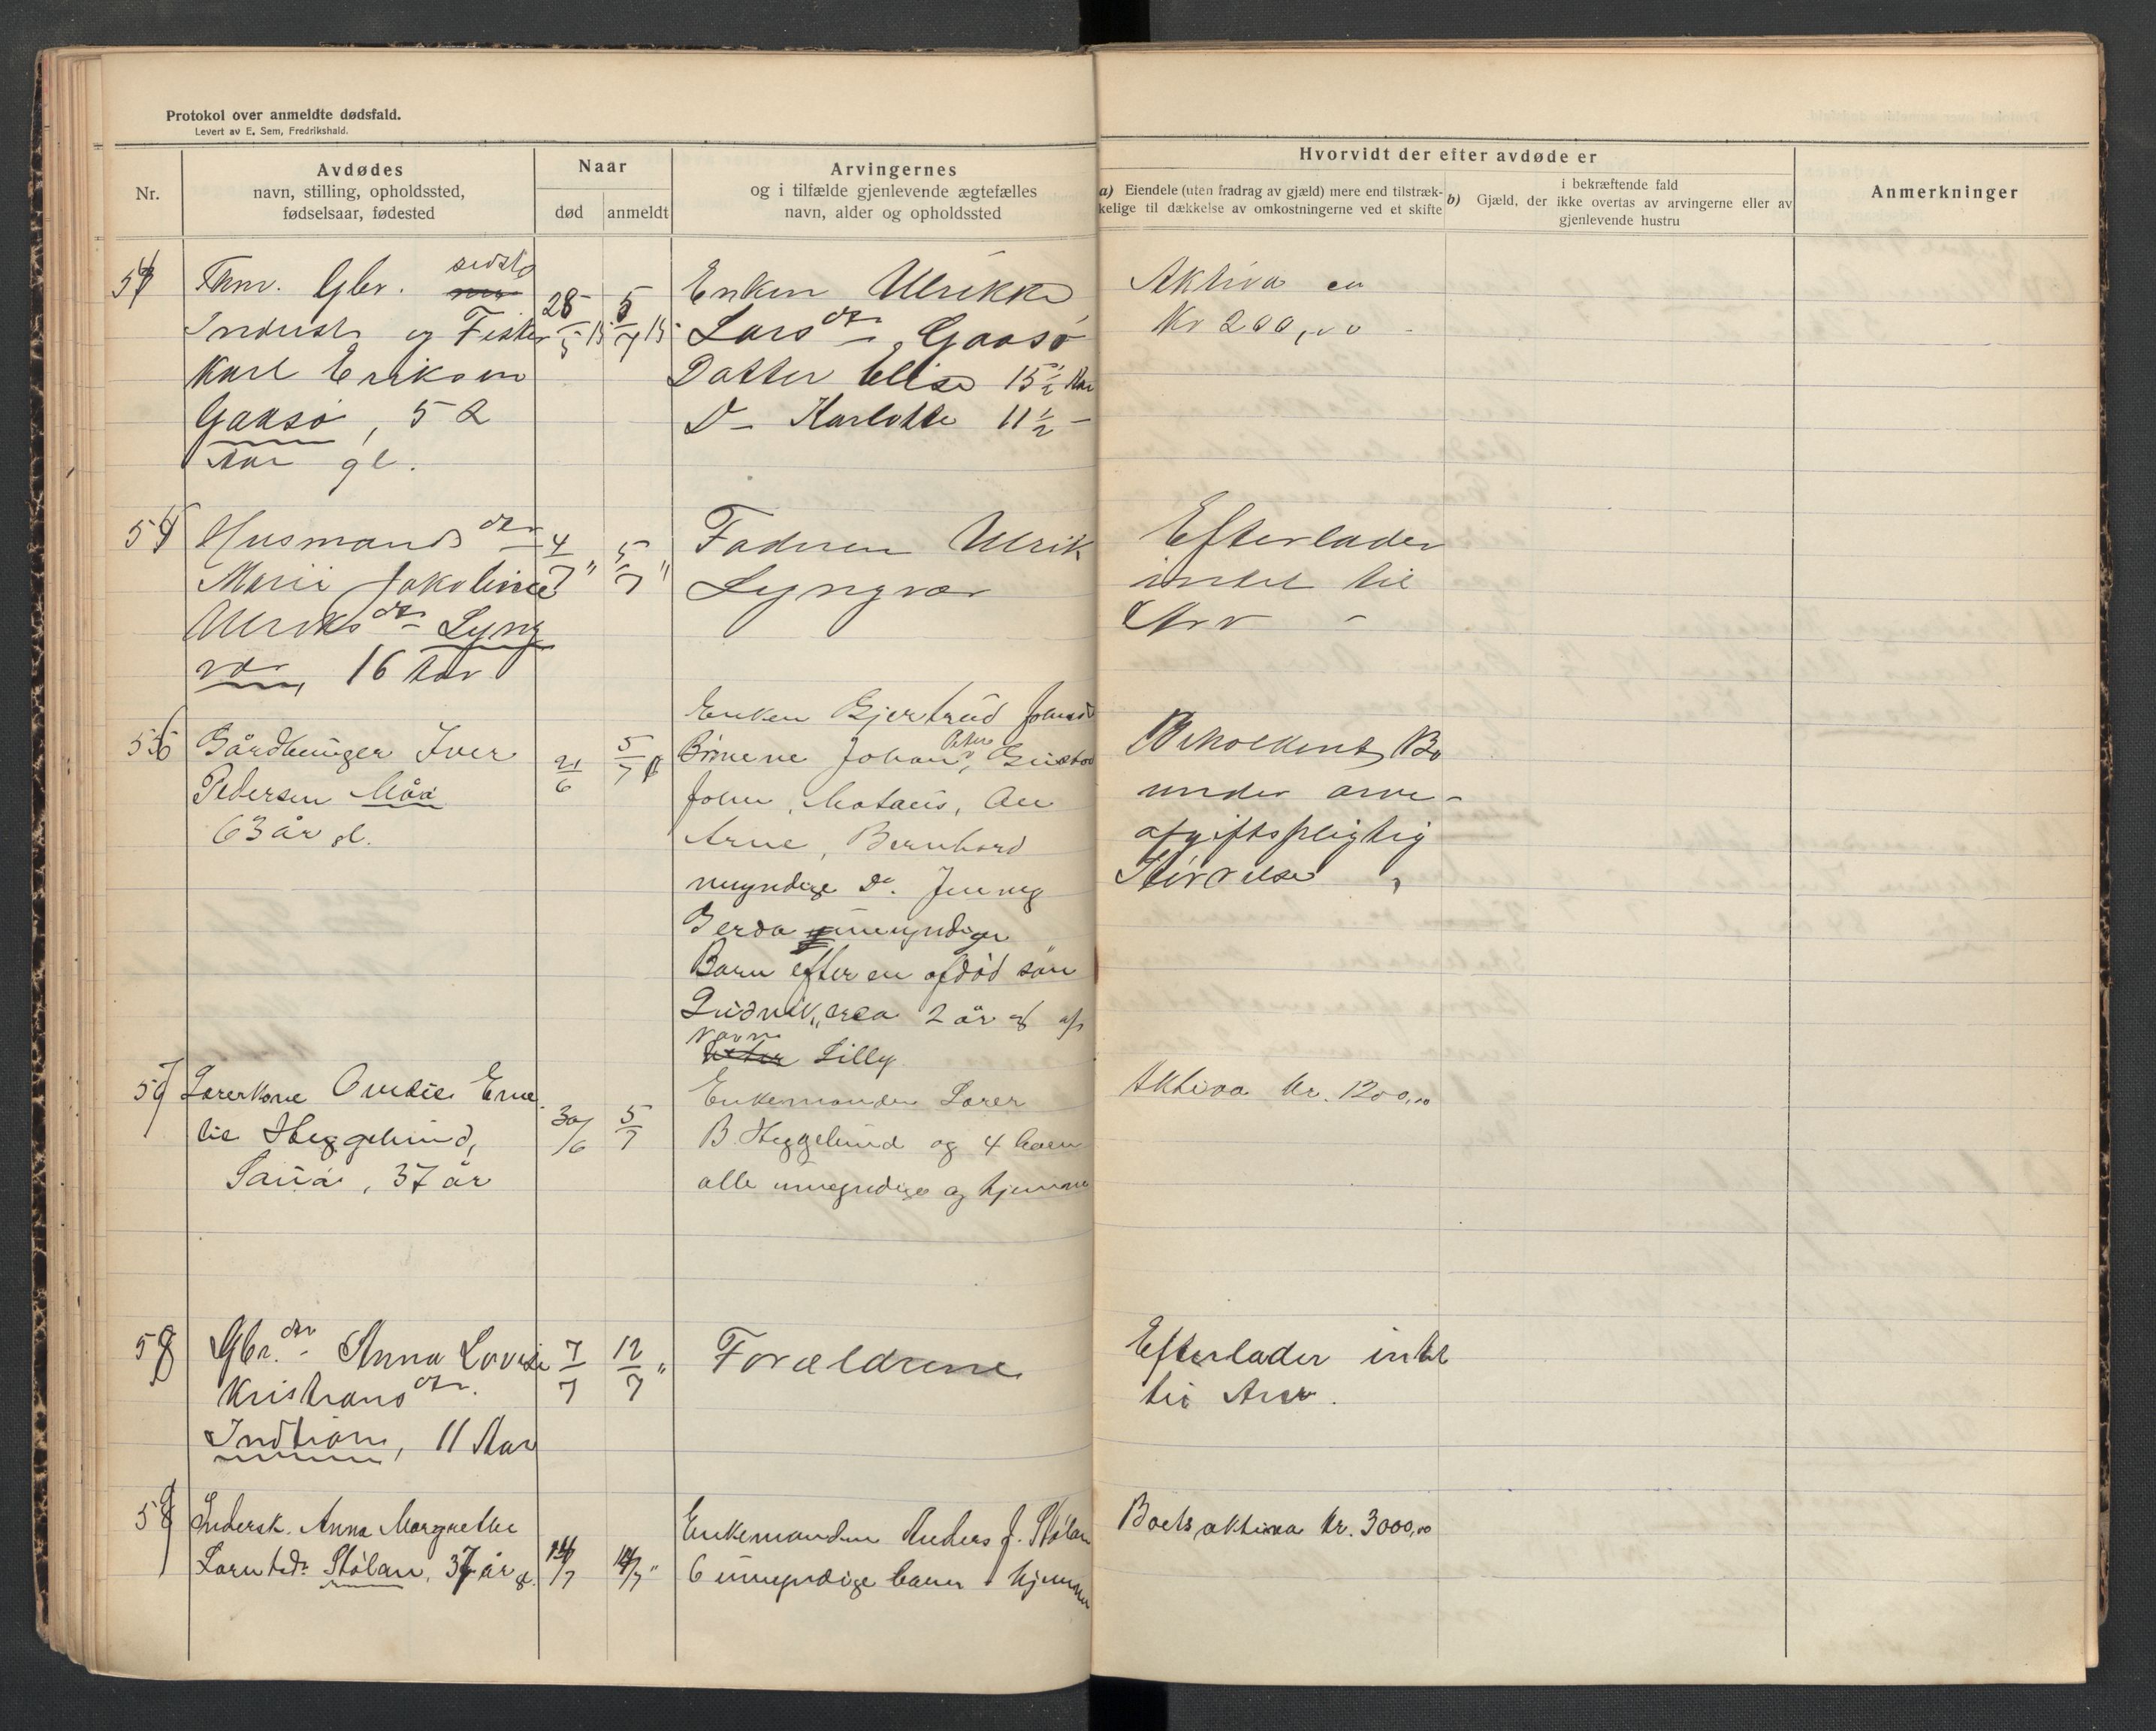 Protokol over anmeldte dødsfald.
Levert av E. Sem, Fredrikshald.
Nr.
Avdødes
navn, stilling, opholdssted,
fødselsaar, fødested
Naar
død
anmeldt
Arvingernes
og i tilfælde gjenlevende ægtefælles
navn, alder og opholdssted
Hvorvidt der efter avdøde er
a) Eiendele (uten fradrag av gjæld) mere end tilstræk-
kelige til dækkelse av omkostningerne ved et skifte
i bekræftende fald
b) Gjæld, der ikke overtas av arvingerne eller av
gjenlevende hustru
Anmerkninger
54
Fhnv. Gbr. sidst
Inderst og Fisker
Karl Eriksen
Gaasø, 52
Aar gl.
28/5 15
5/7 15
Enken Ulrikke
Larsdtr, Gaasø
Datter Elise 15 1/2 Aar
D– Karlotte 11 1/2 –
Aktiva ca
Kr 200,00
55
Husmandsdtr
Marie Jakobine
Ulriksdtr Lyng
vær, 16 Aar
4/7 "
5/7 "
Faderen Ulrik
Lyngvær
Efterlader
intet til
Arv –
56
Gårdbruger Iver
Pedersen
63 år gl.
21/6
5/7
Enken Gjertrud Johnsd
Børnene Johan, Peter, Gustav
John, Mataus,
Arne, Bernhard
myndige Do. Jenny
Gerda umyndige
Barn efter en afdød søn
Ludvik, circa 2 år gl af
navn Lilly
Uskiftent Bo
under arve-
afgiftspligtig
Størrelse
57
Lærerkone Ovidie Eme
lie Heggelund,
37 år
30/6
5/7
Enkemanden Lærer
B. Heggelund og 4 barn
alle umyndige og hjemme
Aktiva kr. 1200,00
58
Gbr.dtr Anna Lovise
Kristiansdtr.
11 Aar
7/7
12/7 "
Forældrene
Efterlader intet
til Arv.
59
Indersk. Anna Margrethe
Stølan, 37 år gl.
14/7
14/7 "
Enkemanden Anders J. Stølan
6 umyndige børn hjemme
Boets aktiva kr. 3000,00